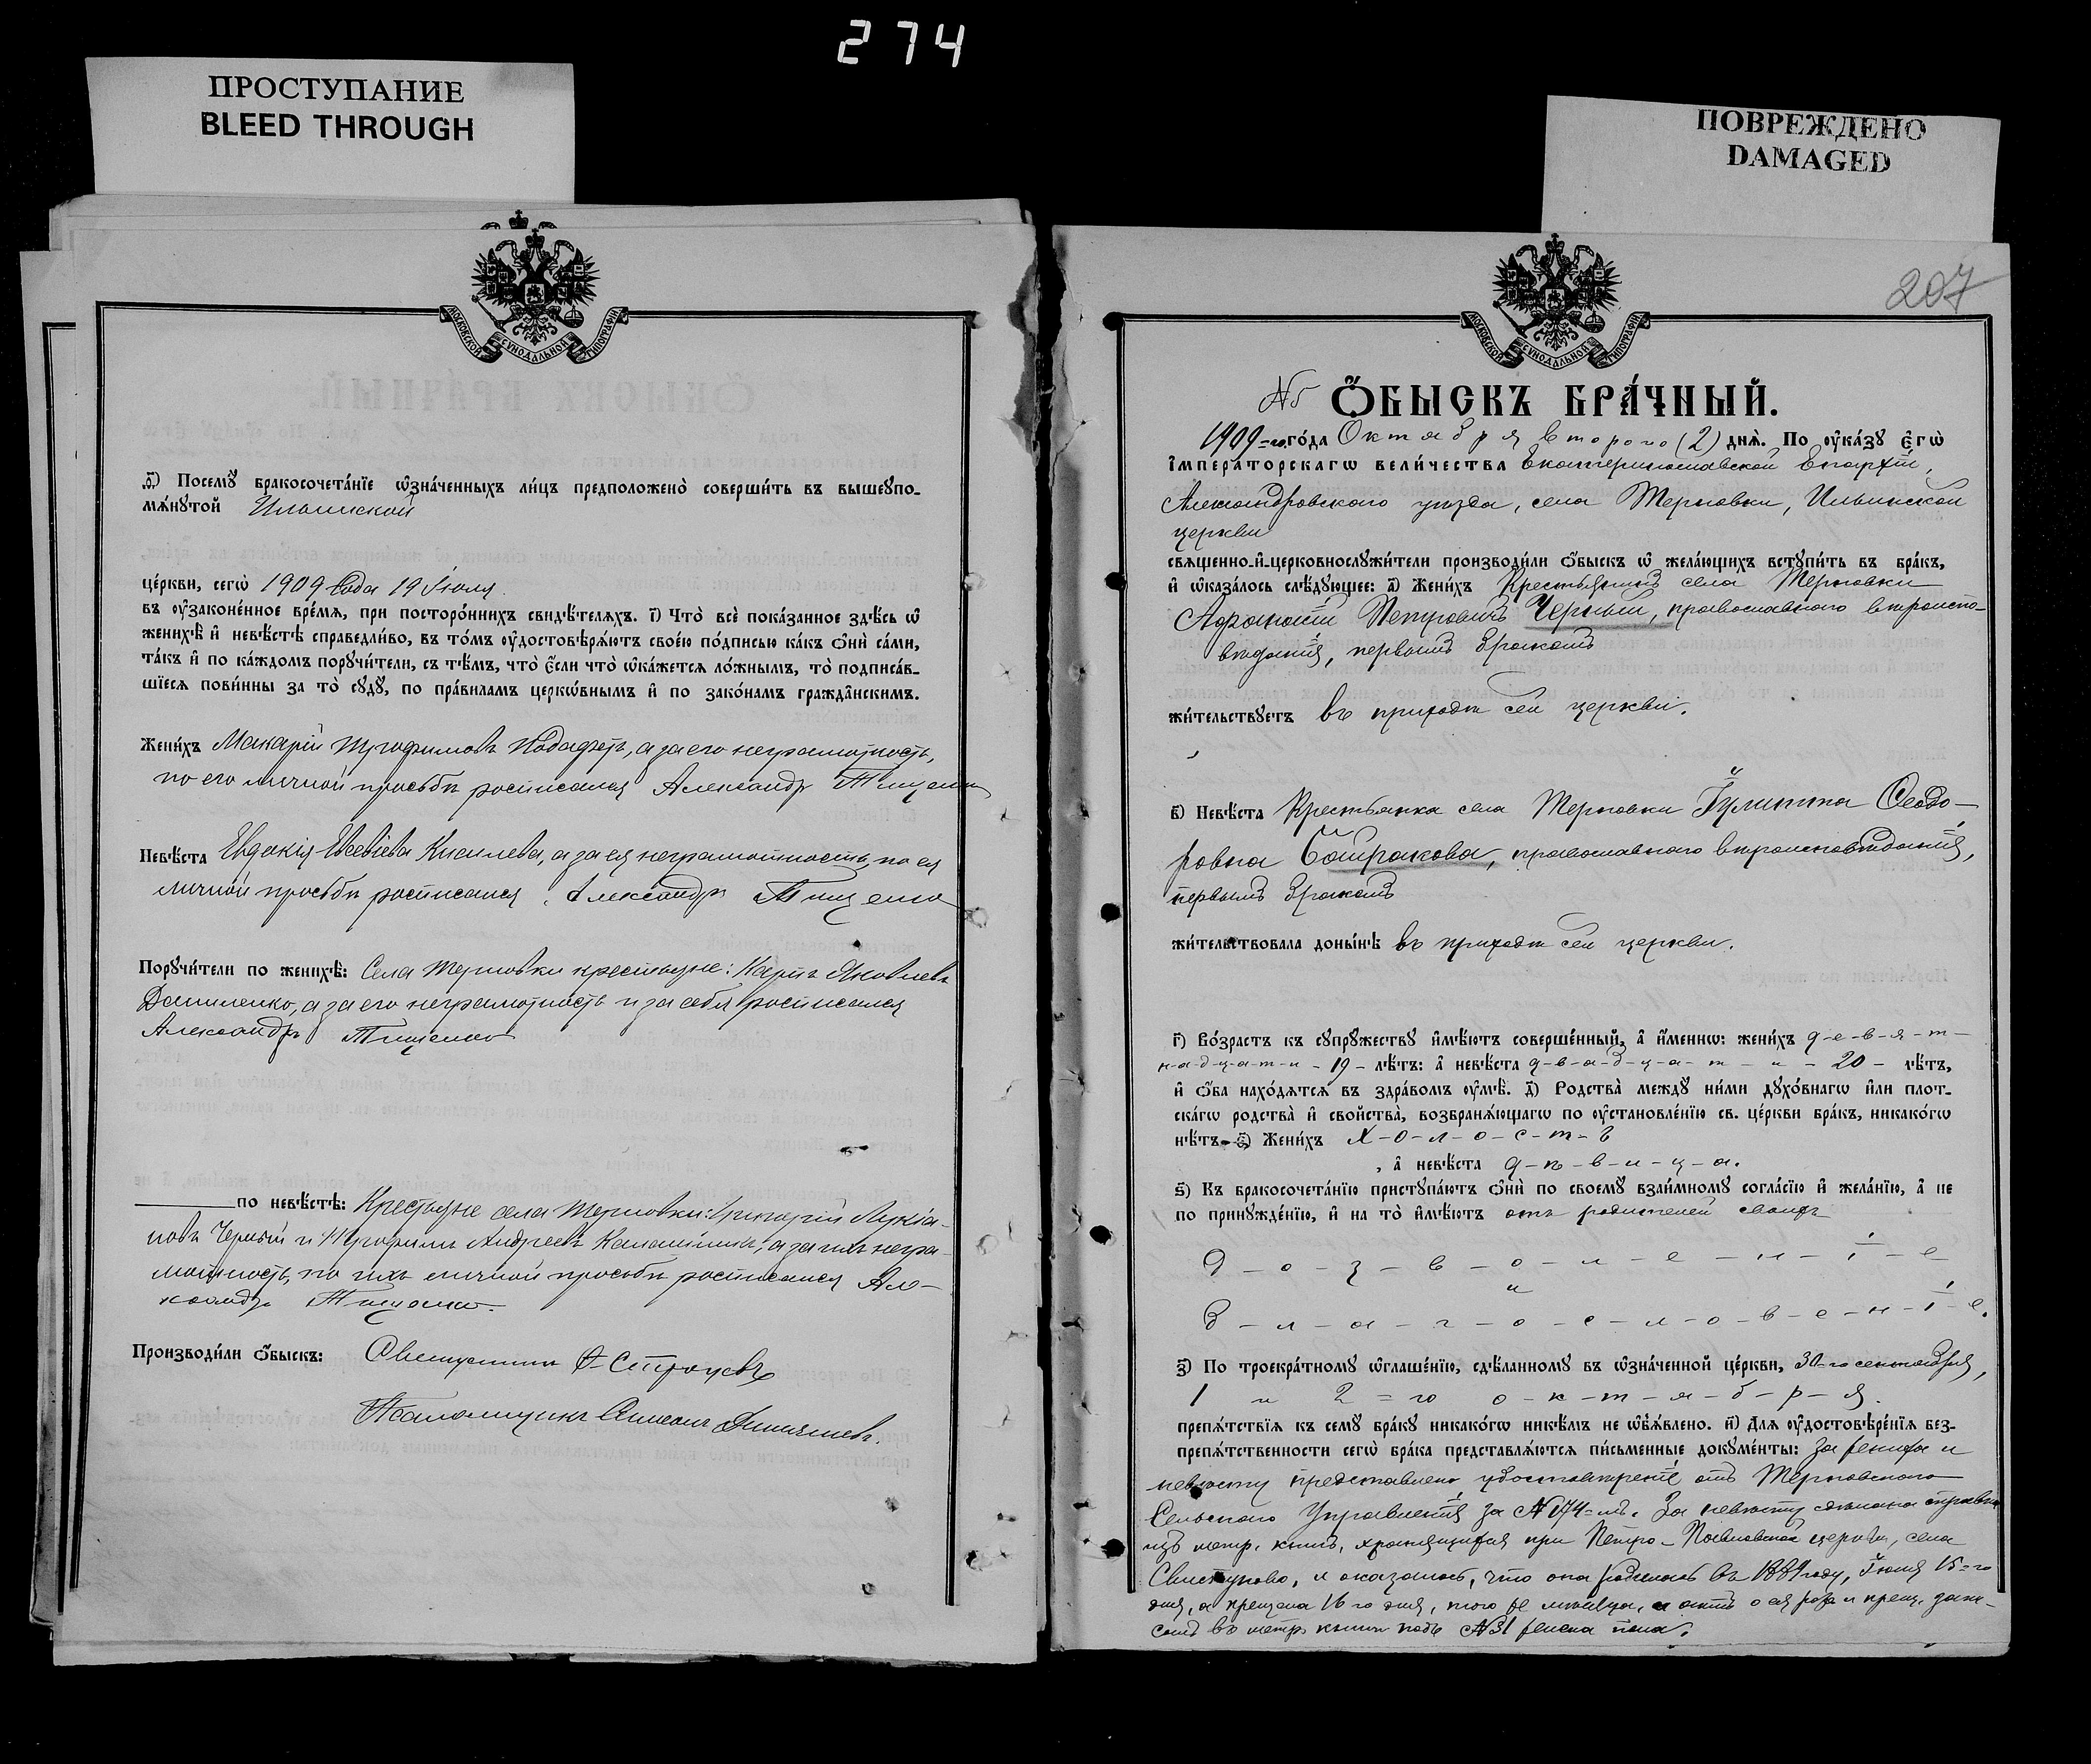 274
ПРОСТУПАНИЕ
BLEED THROUGH
МОСКОВСКОЙ СѴНОДАЛЬНОЙ ТИПОГРАФІИ
ѳ҃) Посемꙋ̀ бракосочета́нїе ѡ҆зна́ченныхъ ли́цъ предположено̀ соверши́ть въ вышеꙋпо-
мѧ́нꙋтой Ильинской
це́ркви, сегѡ̀ 1909 года 19 Іюля
въ ᲂу҆законе́нное вре́мѧ, при посторо́ннихъ свидѣ́телѧхъ. і҃) Что̀ всѐ пока́занное здѣ́сь ѡ҆
женихѣ̀ и҆ невѣ́стѣ справедли́во, въ то́мъ ᲂу҆достовѣрѧ́ютъ свое́ю по́дписью ка́къ ѻ҆нѝ са́ми,
та́къ и҆ по ка́ждомъ порꙋчи́тели, съ тѣ́мъ, что̀ є҆́сли что̀ ѡ҆ка́жетсѧ ло́жнымъ, то̀ подписа́в-
шїесѧ пови́нны за то̀ сꙋдꙋ̀, по пра́виламъ церко́внымъ и҆ по зако́намъ гражда́нскимъ.
Жени́хъ Макарій Трофимовъ, а за его неграмотность,
по его личной просьбѣ росписался Александръ Тищенко
Невѣ́ста Евдокія Евсевіева Киселева, а за ея неграмотность, по ея
личной просьбѣ росписался Александръ Тищенко
Порꙋчи́тели по женихѣ̀: Села Терновки крестьяне: Карпъ Яковлевъ
Даниленко, а за его неграмотность и за себя росписался
Александръ Тищенко
по невѣ́стѣ: Крестьяне села Терновки: Григорій Лукіа-
новъ Черный и Трофимъ Андреевъ Калашникъ, а за ихъ негра-
мотность, по ихъ личной просьбѣ росписался Але-
ксандръ Тищенко.
Производи́ли ѻ҆́быскъ: Священникъ
Псаломщикъ Симеонъ
ПОВРЕЖДЕНО
DAMAGED
207
МОСКОВСКОЙ СѴНОДАЛЬНОЙ ТИПОГРАФІИ
№ Ѻ҆́БЫСКЪ БРА́ЧНЫЙ.
1909=го го́да Октября второго (2) днѧ̀. По ᲂу҆ка́зꙋ Є҆гѡ̀
І҆мпера́торскагѡ вели́чества Екатеринославской Епархіи,
Александровскаго уѣзда, села Терновки, Ильинской
церкви
свѧще́нно-и҆-церковнослꙋжи́тели производи́ли ѻ҆́быскъ ѡ҆ жела́ющихъ встꙋпи́ть въ бра́къ,
и҆ ѡ҆каза́лось слѣ́дꙋющее: а҃) Жени́хъ Крестьянинъ села Терновки
Афанасій Петровичъ Черный, православнаго вѣроиспо-
вѣданія, первымъ бракомъ
жи́тельствꙋетъ въ приходѣ сей церкви.
в҃) Невѣ́ста Крестьянка села Терновки Іулитта Ѳеодо-
ровна Байракова, православнаго вѣроисповѣданія,
первымъ бракомъ
жи́тельствовала доны́нѣ въ приходѣ сей церкви.
г҃) Во́зрастъ къ сꙋпрꙋ́жествꙋ и҆мѣ́ютъ соверше́нный, а҆ и҆́меннѡ: жени́хъ д-е-в-я-т-
н-а-д-ц-а-т-и - 19 - лѣ́тъ: а҆ невѣ́ста д-в-а-д-ц-а-т-и - 20 - лѣ́тъ,
и҆ ѻ҆́ба нахо́дѧтсѧ въ здра́вомъ ᲂу҆мѣ̀. д҃) Родства̀ междꙋ̀ ни́ми дꙋхо́внагѡ и҆лѝ плот-
ска́гѡ родства̀ и҆ свойства̀, возбранѧ́ющагѡ по ᲂу҆становле́нїю св. це́ркви бра́къ, никако́гѡ
нѣ́тъ. є҃) Жени́хъ х-о-л-о-с-т-ъ
, а҆ невѣ́ста д-ѣ-в-и-ц-а.
ѕ҃) Къ бракосочета́нїю пристꙋпа́ютъ ѻ҆нѝ по своемꙋ̀ взаи́мномꙋ согла́сїю и҆ жела́нїю, а҆ не
по принꙋжде́нїю, и҆ на то̀ и҆мѣ́ютъ отъ родителей своихъ
д-о-з-в-о-л-е-н-і-е
и
б-л-а-г-о-с-л-о-в-е-н-і-е.
з҃) По троекра́тномꙋ ѡ҆глаше́нїю, сдѣ́ланномꙋ въ ѡ҆зна́ченной це́ркви, 30=го сентября,
1 и 2=го о-к-т-я-б-р-я.
препѧ́тствїѧ къ семꙋ̀ бра́кꙋ никако́гѡ никѣ́мъ не ѡ҆б̾ѧ́влено. и҃) Длѧ̀ ᲂу҆достовѣре́нїѧ без-
препѧ́тственности сегѡ̀ бра́ка представлѧ́ютсѧ пи́сьменные докꙋме́нты: за жениха и
невѣсту представлено удостовѣреніе отъ Терновскаго
Сельскаго Управленія за №174=мъ. За невѣсту сдѣлана справка
изъ метр. книгъ, хранящихся при Петро-Павловской церкви, села
Свистуново, и оказалось, что она родилась въ 1889 году, Іюля 15=го
дня, а крещена 16 го дня, того же мѣсяца, и актъ о ея рожд. и крещ. запи-
санъ въ метр. книги подъ №31 женска пола.